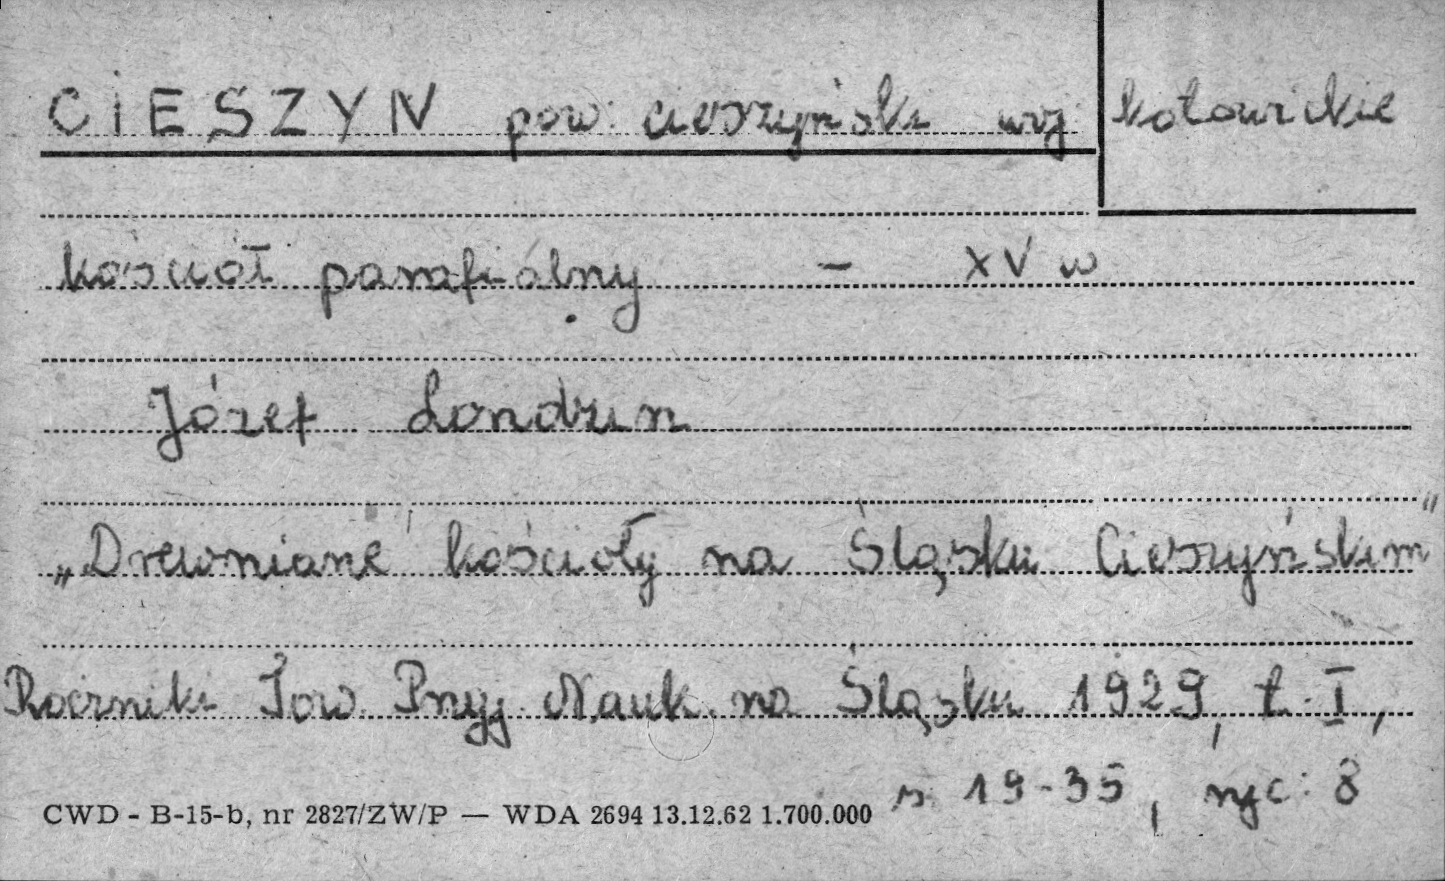 CIESZYN pow. cieszyński woj katowickie
kościół parafialny – XV w
Józef Londzin
„Drewniane kościoły na Śląsku Cieszyńskim"
Roczniki Tow. Przyj. Nauk. na Śląsku 1929, t. I,
s. 19-35, ryc: 8
CWD - B-15-b, nr 2827/ZW/P — WDA 2694 13.12.62 1.700.000